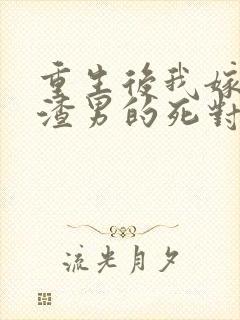 重生後我嫁
渣男的死對
流光月夕